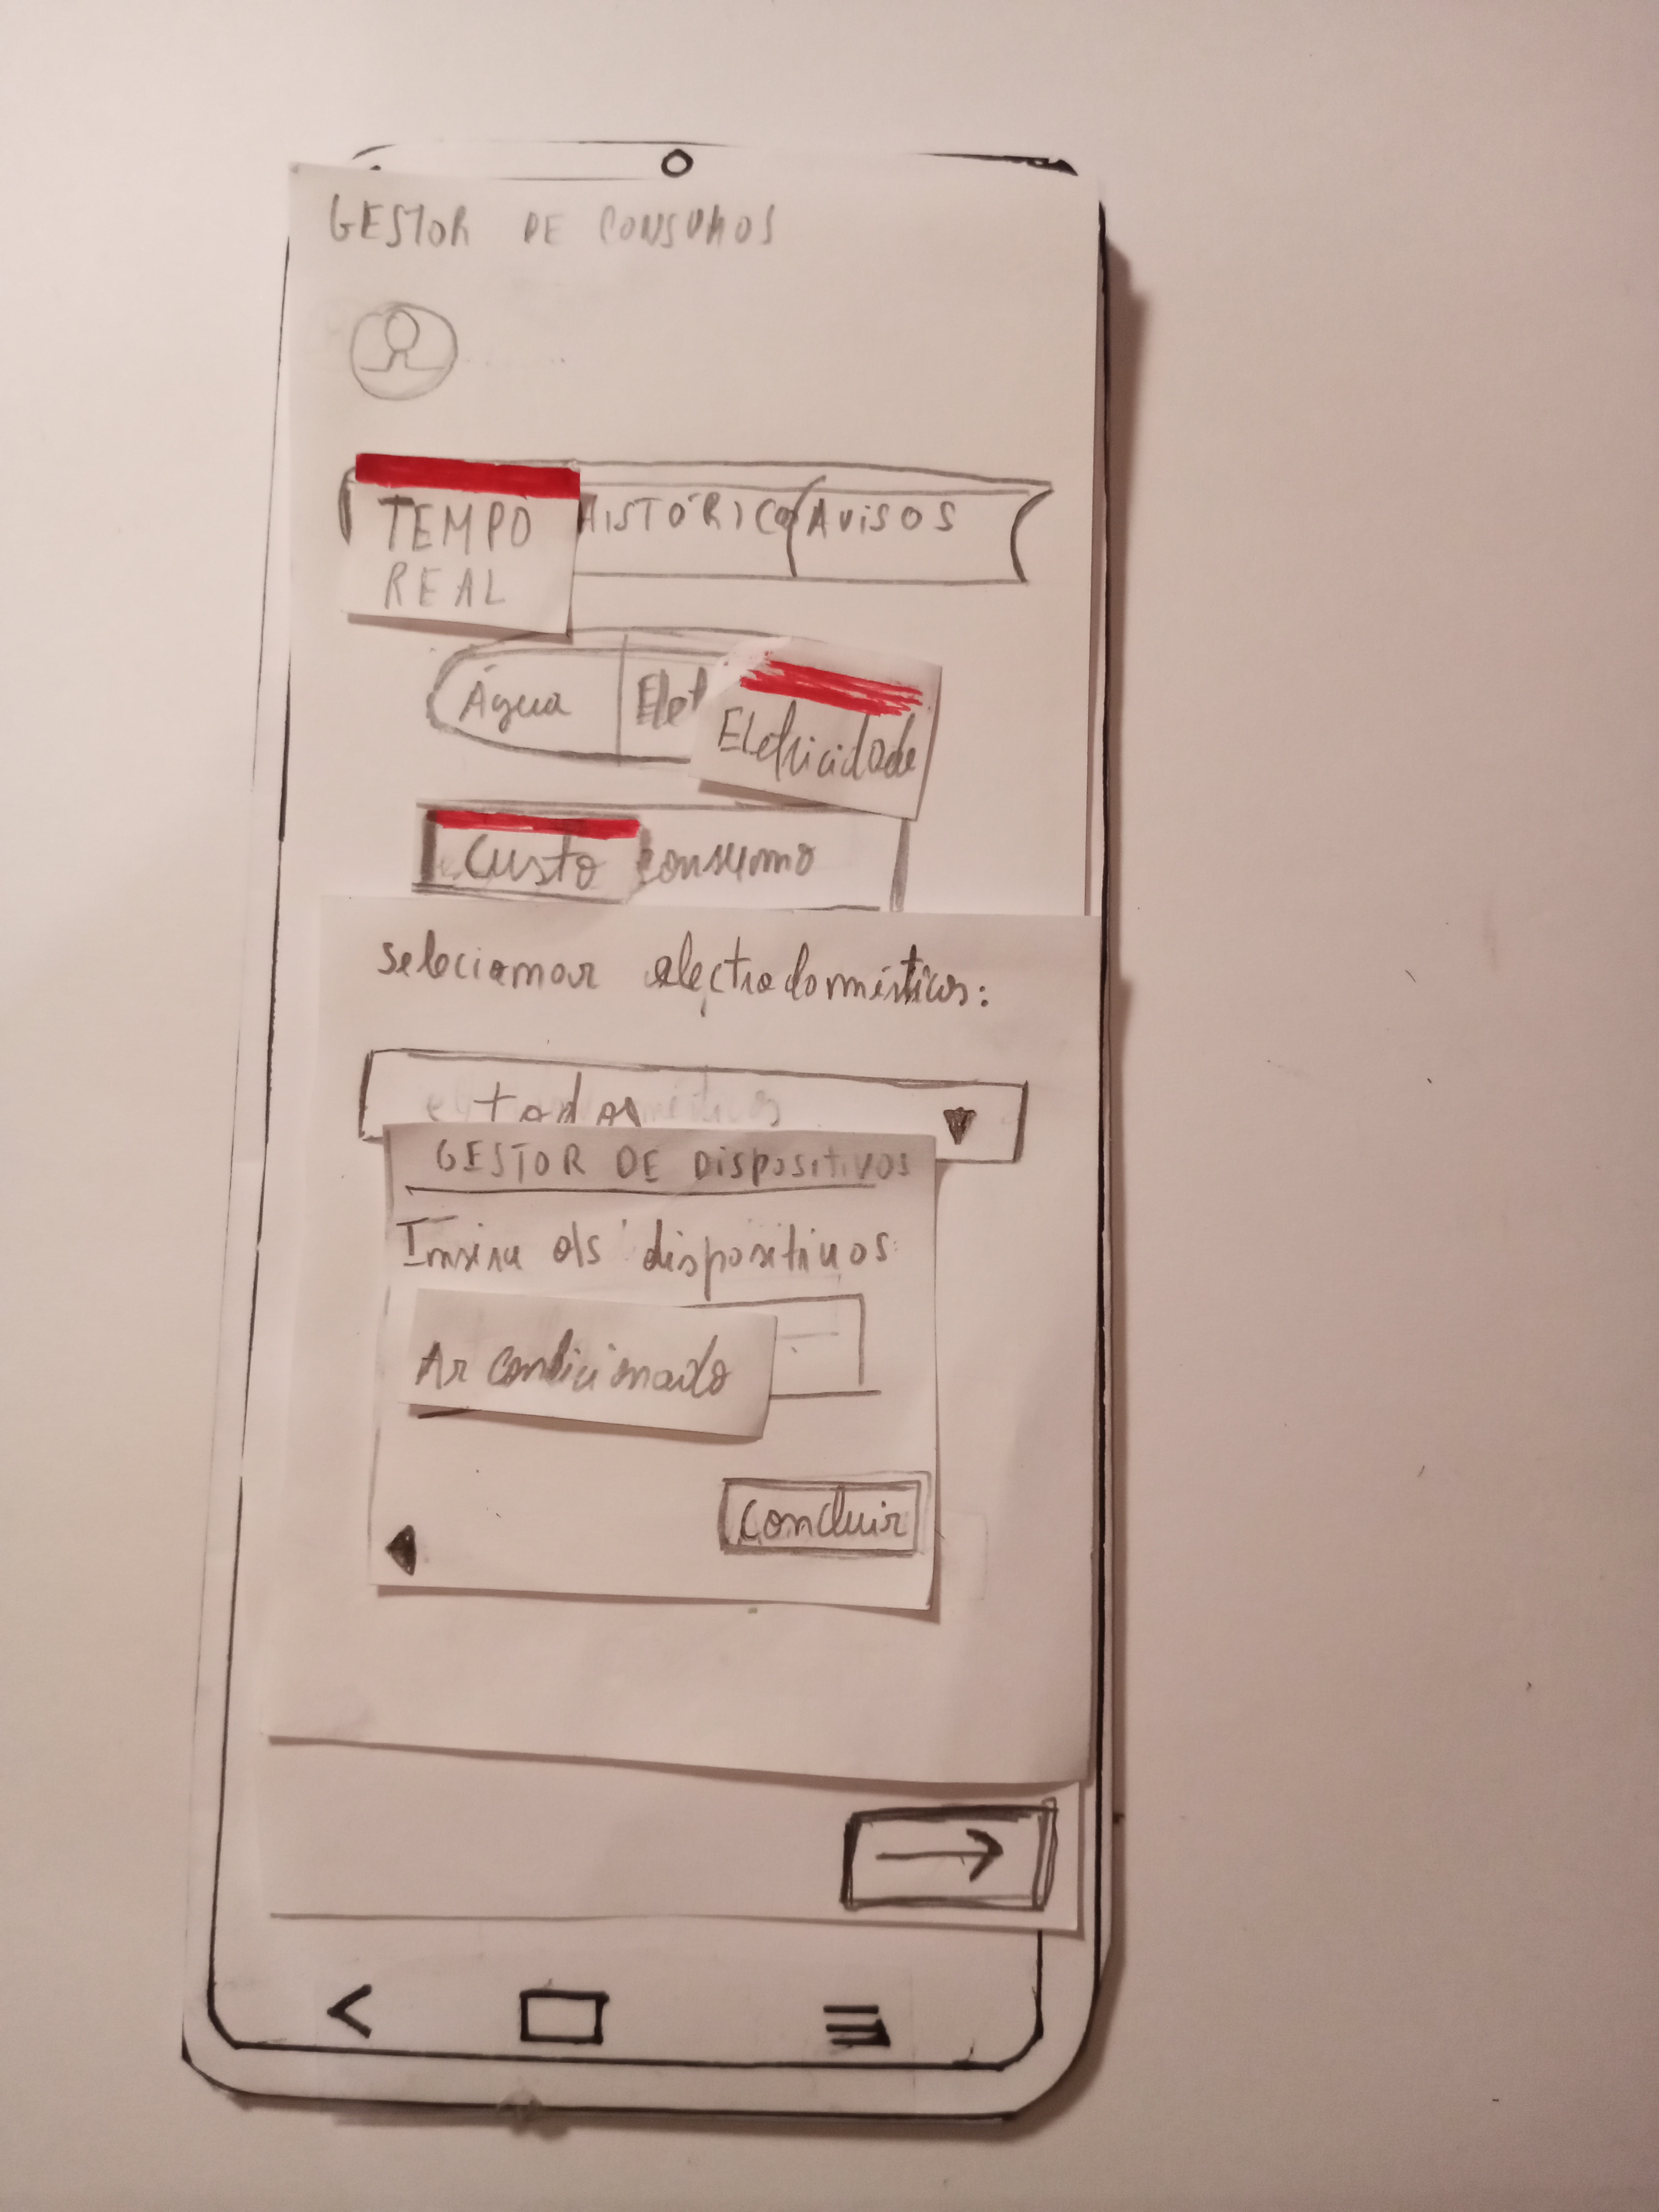 GESTOR DE CONSUMOS
TEMPO
REAL
HISTÓRICO
AVISOS
Água
Elet
Eletricidade
Custo
consumo
selecionar electrodomésticos:
todos
GESTOR DE DISPOSITIVOS
Insira os dispositivos:
Ar condicionado
Concluir